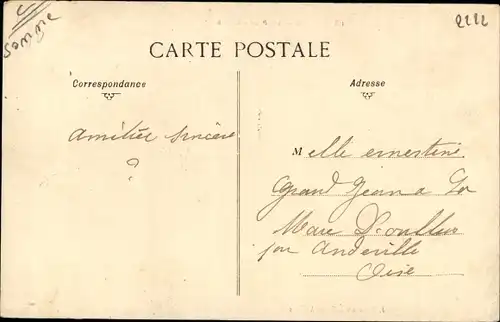 Somme
2222
CARTE POSTALE
Correspondance
Adresse
Amitiée sincère
?
Melle ernestine
Grand Jean a La
Mare D'oulleur
par Andeville
Oise